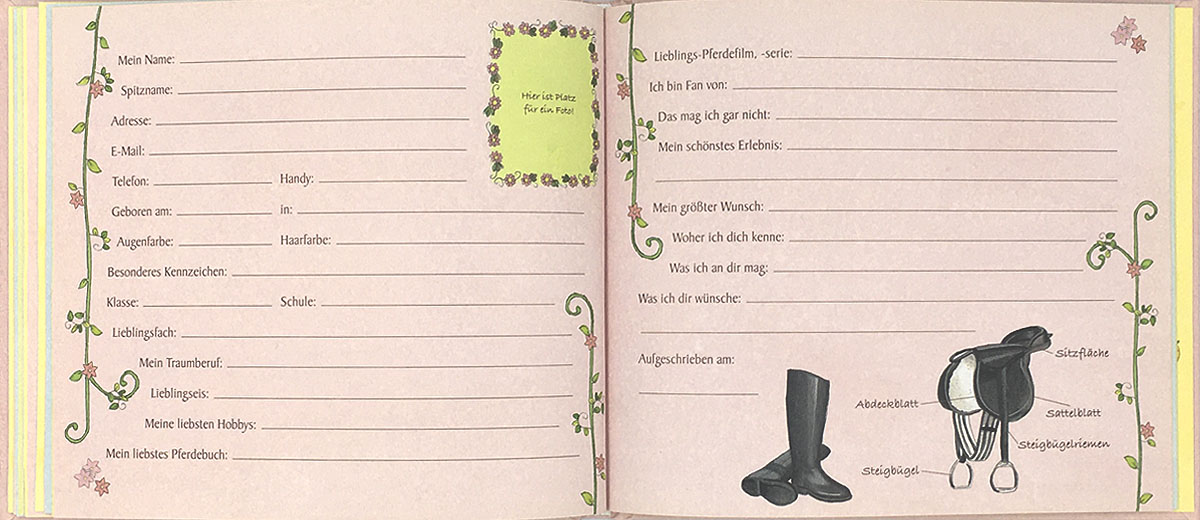 Mein Name:
Spitzname:
Adresse:
E-Mail:
Telefon: Handy:
Geboren am: in:
Augenfarbe: Haarfarbe:
Besonderes Kennzeichen:
Klasse: Schule:
Lieblingsfach:
Mein Traumberuf:
Lieblingseis:
Meine liebsten Hobbys:
Mein liebstes Pferdebuch:
Hier ist Platz
für ein Foto!
Lieblings-Pferdefilm, -serie:
Ich bin Fan von:
Das mag ich gar nicht:
Mein schönstes Erlebnis:
Mein größter Wunsch:
Woher ich dich kenne:
Was ich an dir mag:
Was ich dir wünsche:
Aufgeschrieben am:
Sitzfläche
Abdeckblatt
Sattelblatt
Steigbügelriemen
Steigbügel